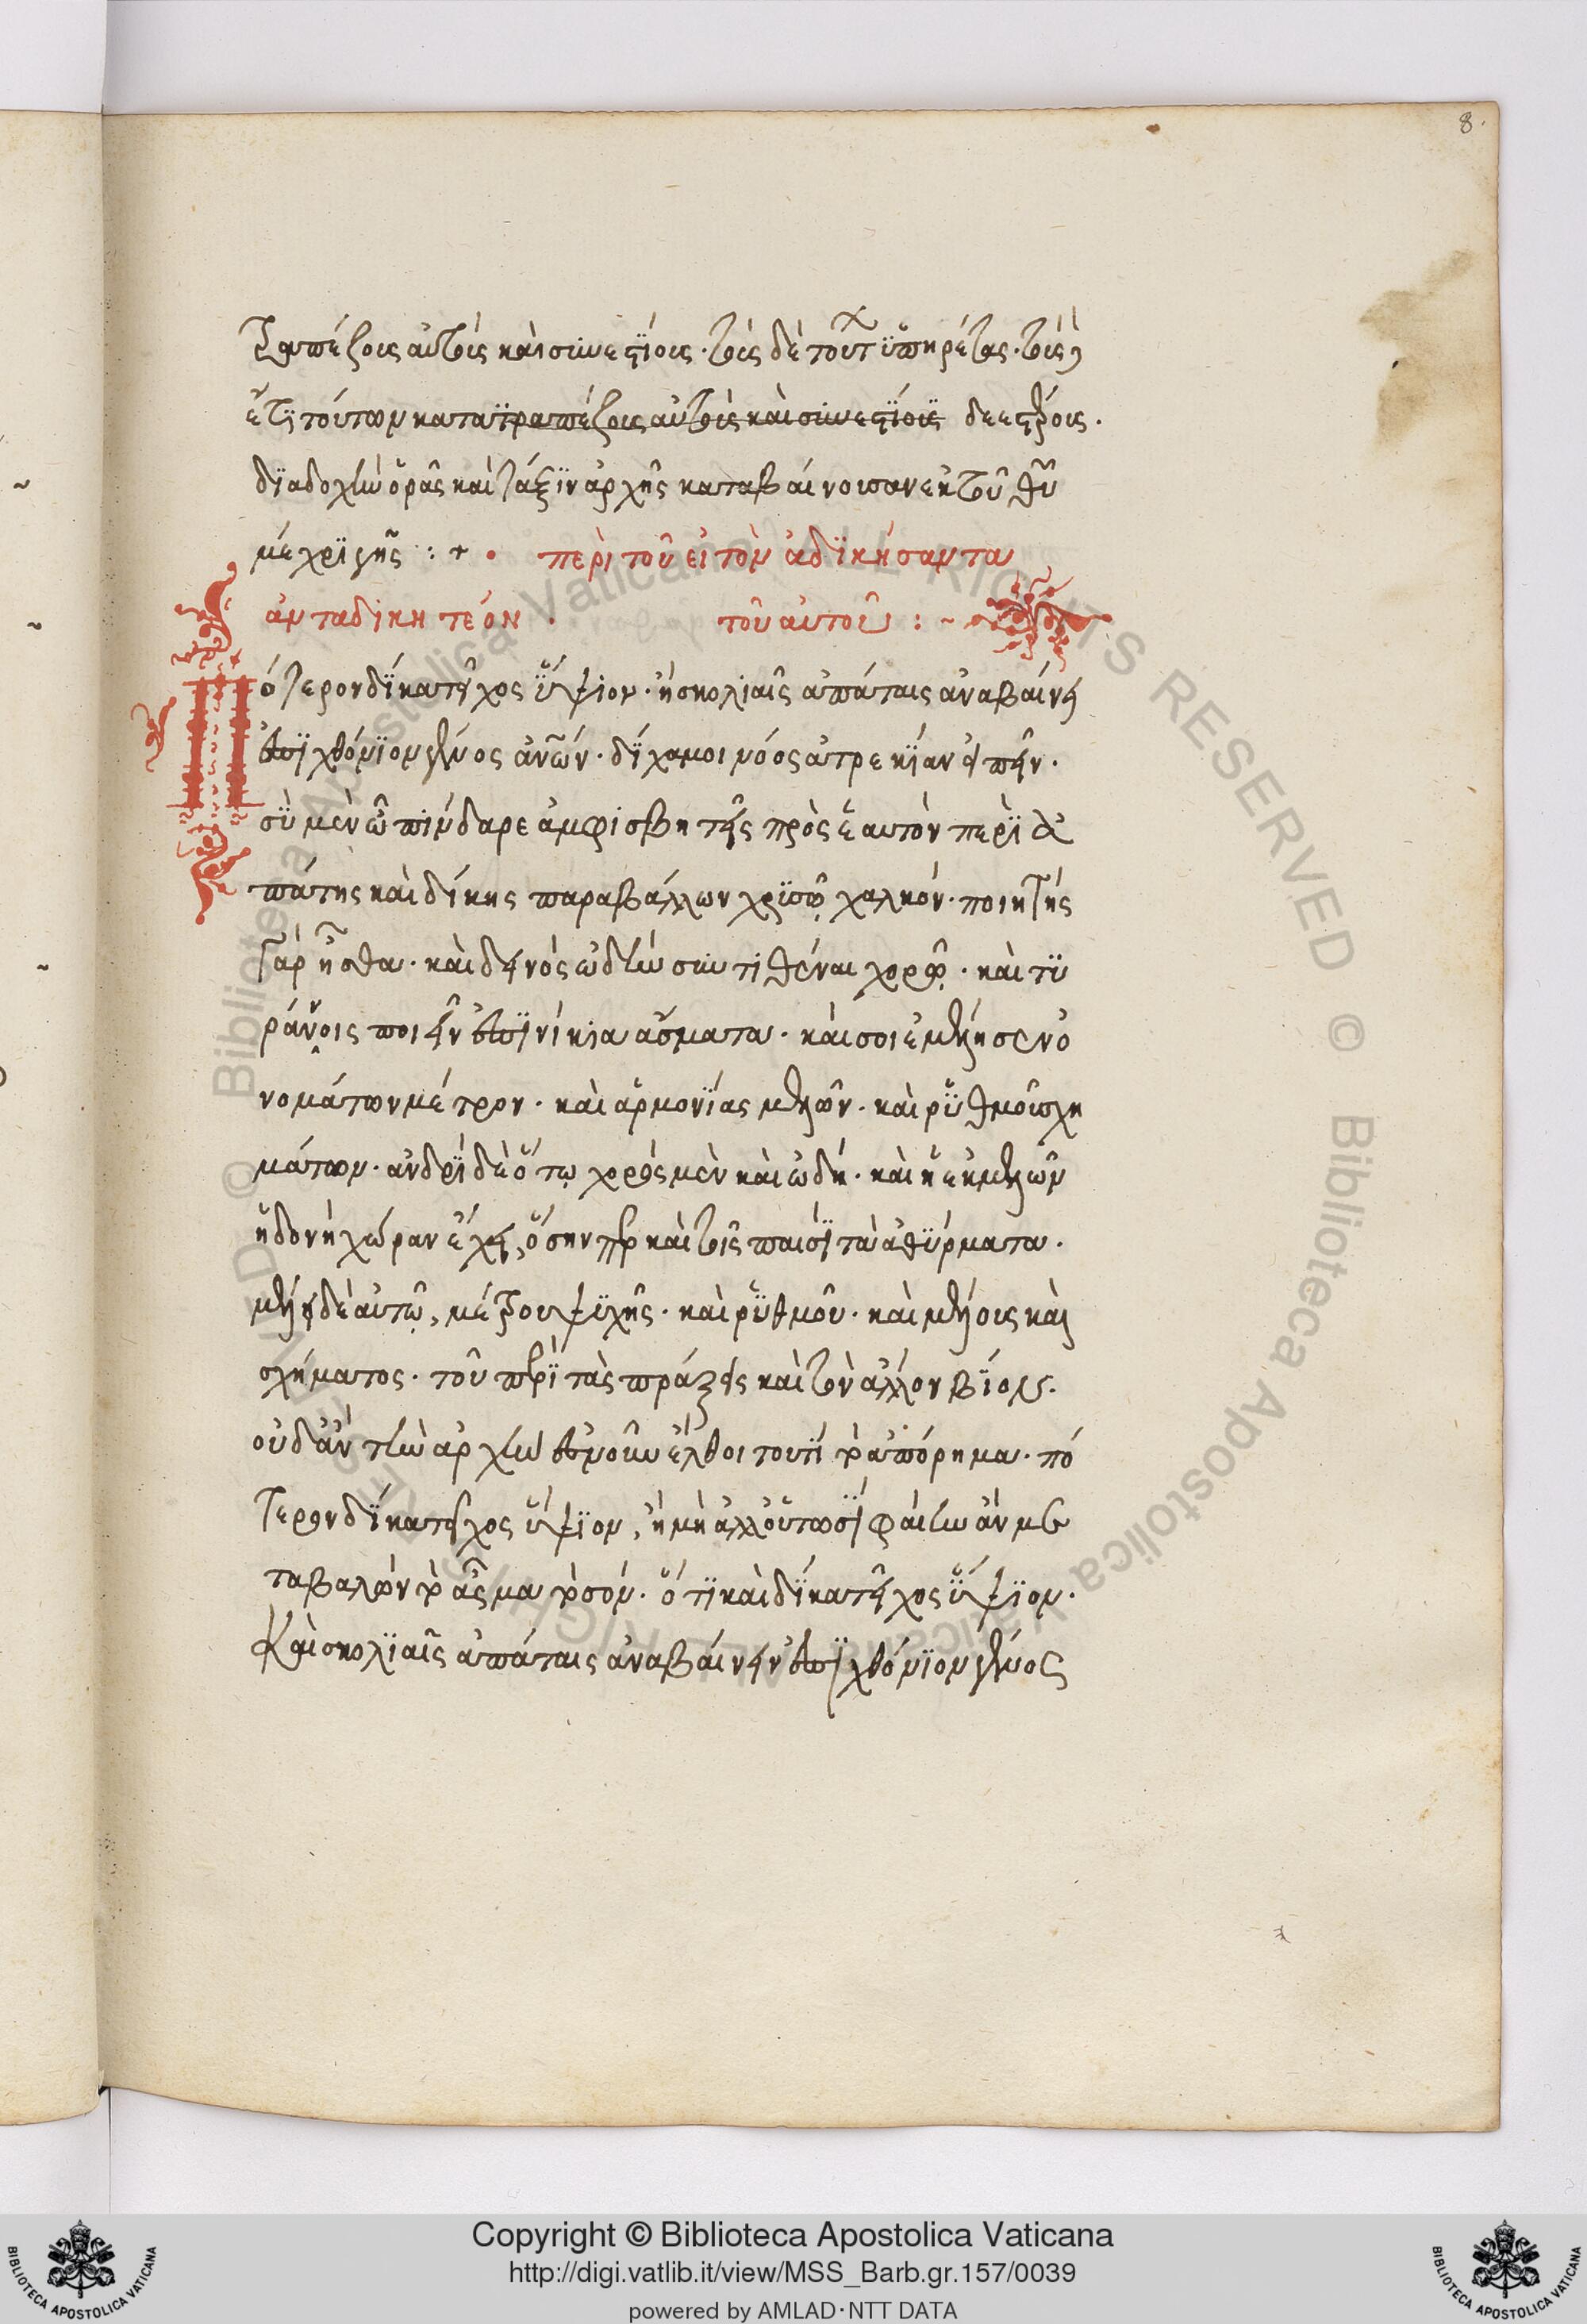 8.
τραπέζοις αὐτοῖς καὶ συνεστίοις. τοῖς δὲ τούτων ὑπηρέτας. τοῖς δ'
ἔτι τούτων κατα τραπέζοις αὐτοῖς καὶ συνεστίοις δεεστέροις.
διαδοχὴν ὁρᾷς καὶ τάξιν ἀρχῆς καταβαίνουσαν ἐκ τοῦ θῦ
μέχρι γῆς : + • περὶ τοῦ εἰ τὸν ἀδικήσαντα
ἀνταδικητέον . τοῦ αὐτοῦ : ~
Πότερον δίκα τεῖχος ὕψιον. ἢ σκολιαῖς ἀπάταις ἀναβαίνει
ἐπιχθόνιον γένος ἀνῶν. δίχα μοι νόος ἀτρεκίαν εἰπεῖν.
σὺ μὲν ὦ πίνδαρε ἀμφισβητεῖς πρὸς ἑαυτὸν περὶ ἀ
πάτης καὶ δίκης παραβάλλων χρυσῷ χαλκόν. ποιητὴς
γὰρ ἦσθα. καὶ δεινὸς ὠδὴν συντιθέναι χορῷ. καὶ τυ
ράννοις ποιεῖν ἐπινίκια ἄσματα. καί σοι ἐμέλησεν ὀ
νομάτων μέτρον. καὶ ἁρμονίας μελῶν. καὶ ῥυθμοῦ σχη
μάτων. ἀνδρὶ δὲ ὅτῳ χορὸς μὲν καὶ ὠδή. καὶ ἡ ἐκ μελῶν
ἡδονὴ χώραν ἔχει, ὅσην περ καὶ τοῖς παισὶ τὰ ἀθύρματα.
μέλει δὲ αὐτῷ, μέτρου ψυχῆς. καὶ ῥυθμοῦ. καὶ μέλους καὶ
σχήματος. τοῦ περὶ τὰς πράξεις καὶ τὸν ἄλλον βίον.
οὐδ' ἂν τὴν ἀρχὴν ἐπὶ νοῦν ἔλθοι τουτὶ τὸ ἀπόρημα. πό
τερον δίκα τεῖχος ὕψιον, ἢ μὴ ἀλλ' οὑτωσὶ φαίην ἂν με
ταβαλὼν τὸ ᾆσμα τὸ σόν. ὅτι καὶ δίκα τεῖχος ὕψιον.
Καὶ σκολιαῖς ἀπάταις ἀναβαίνειν ἐπιχθόνιον γένος
Copyright © Biblioteca Apostolica Vaticana
http://digi.vatlib.it/view/MSS_Barb.gr.157/0039
powered by AMLAD·NTT DATA